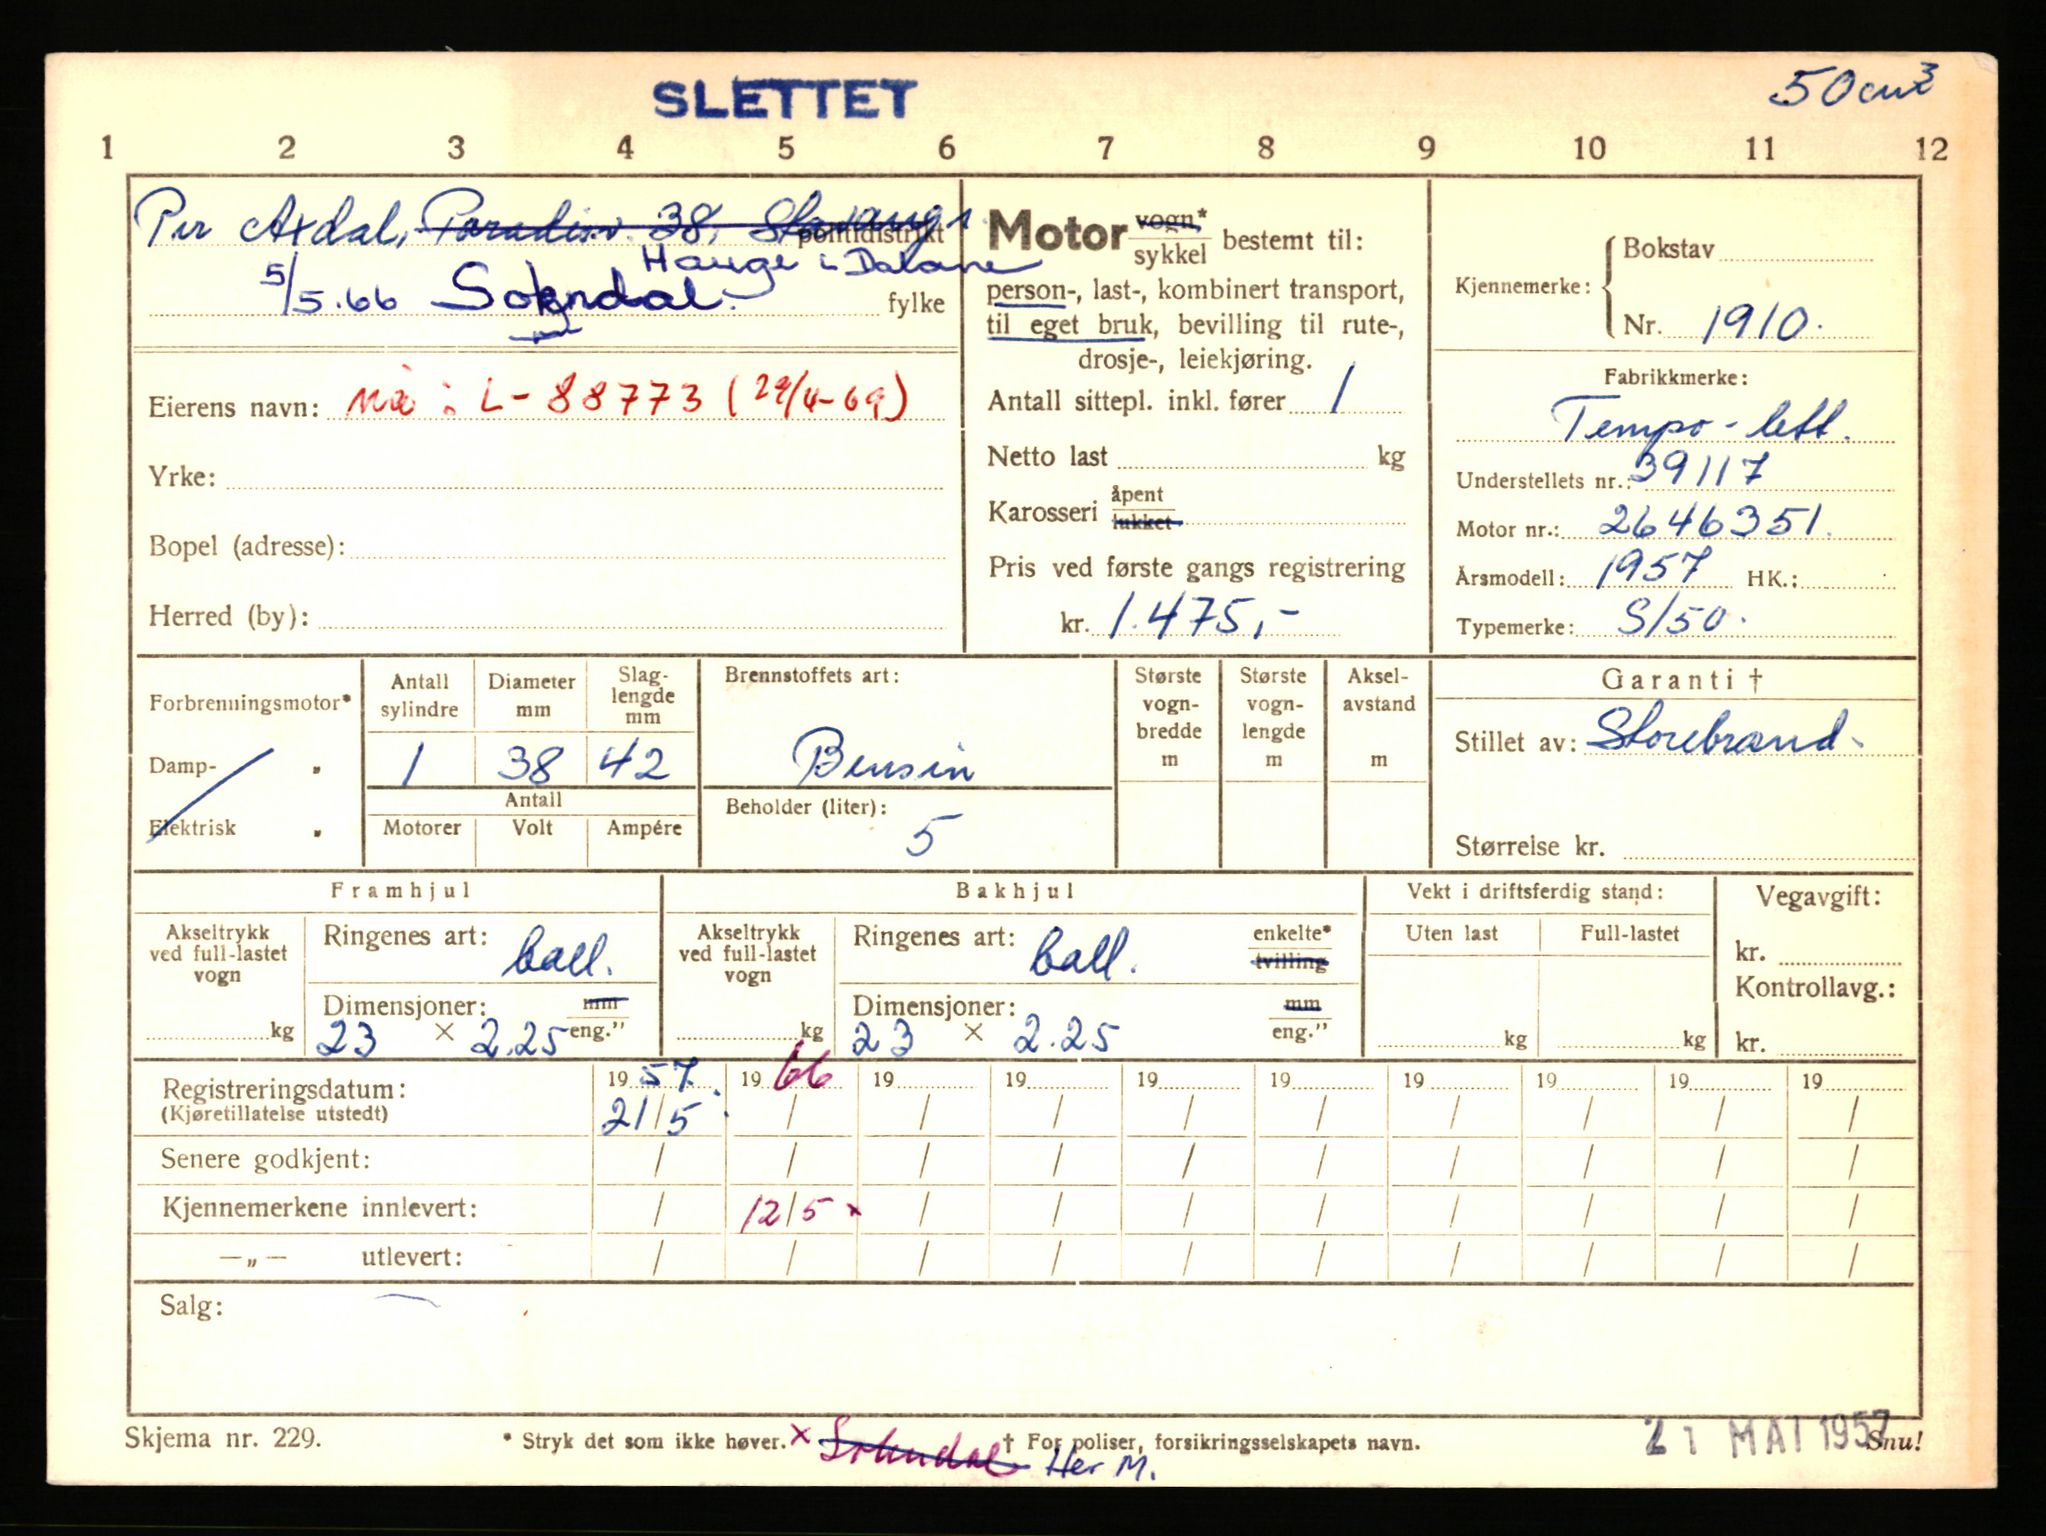 SLETTET
50 cm3
1 2 3 4 5 6 7 8 9 10 11 12
Per Axdal, Paradisv. 38, Stavanger
politidistrikt
Hauge i Dalane
5/5.66 Sokndal.
fylke
Eierens navn: nå: L-88773 (29/4-69)
Yrke:
Bopel (adresse):
Herred (by):
Motor vogn,* sykkel bestemt til:
person-, last-, kombinert transport,
til eget bruk, bevilling til rute-,
drosje-, leiekjøring.
Antall sittepl. inkl. fører 1
Netto last kg
Karosseri åpent lukket
Pris ved første gangs registrering
kr. 1.475,-
Kjennemerke: Bokstav
Nr. 1910.
Fabrikkmerke:
Tempo-lett.
Understellets nr.: 39117
Motor nr.: 2646351.
Årsmodell: 1957 HK.:
Typemerke: S/50.
Forbrenningsmotor*
Damp- „
Elektrisk „
Antall sylindre
1
Diameter mm
38
Slag-lengde mm
42
Antall
Motorer Volt Ampére
Brennstoffets art:
Bensin
Beholder (liter):
5
Største vogn-bredde m
Største vogn-lengde m
Aksel-avstand m
Garanti †
Stillet av: Storebrand.
Størrelse kr.
Framhjul
Akseltrykk ved full-lastet vogn
kg
Ringenes art: ball.
Dimensjoner: mm eng.”
23 × 2.25
Bakhjul
Akseltrykk ved full-lastet vogn
kg
Ringenes art: ball.
enkelte* tvilling
Dimensjoner: mm eng.”
23 × 2.25
Vekt i driftsferdig stand:
Uten last Full-lastet
kg kg
Vegavgift:
kr.
Kontrollavg.:
kr.
Registreringsdatum: 19 57. 19 66 19 19 19 19 19 19 19 19
(Kjøretillatelse utstedt) 21/5 / / / / / / / / /
Senere godkjent: / / / / / / / / / /
Kjennemerkene innlevert: / 12/5 × / / / / / / / /
—„— utlevert: / / / / / / / / / /
Salg:
Skjema nr. 229.
* Stryk det som ikke høver.
× Sokndal Her M.
† For poliser, forsikringsselskapets navn.
21 MAI 1957
Snu!